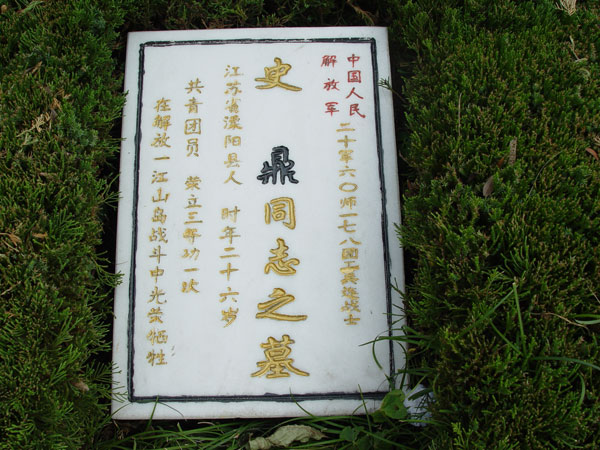 中国人民
解放军
二十军六〇师一七八团工兵连战士
史鼎同志之墓
江苏省溧阳县人 时年二十六岁
共青团员 荣立三等功一次
在解放一江山岛战斗中光荣牺牲